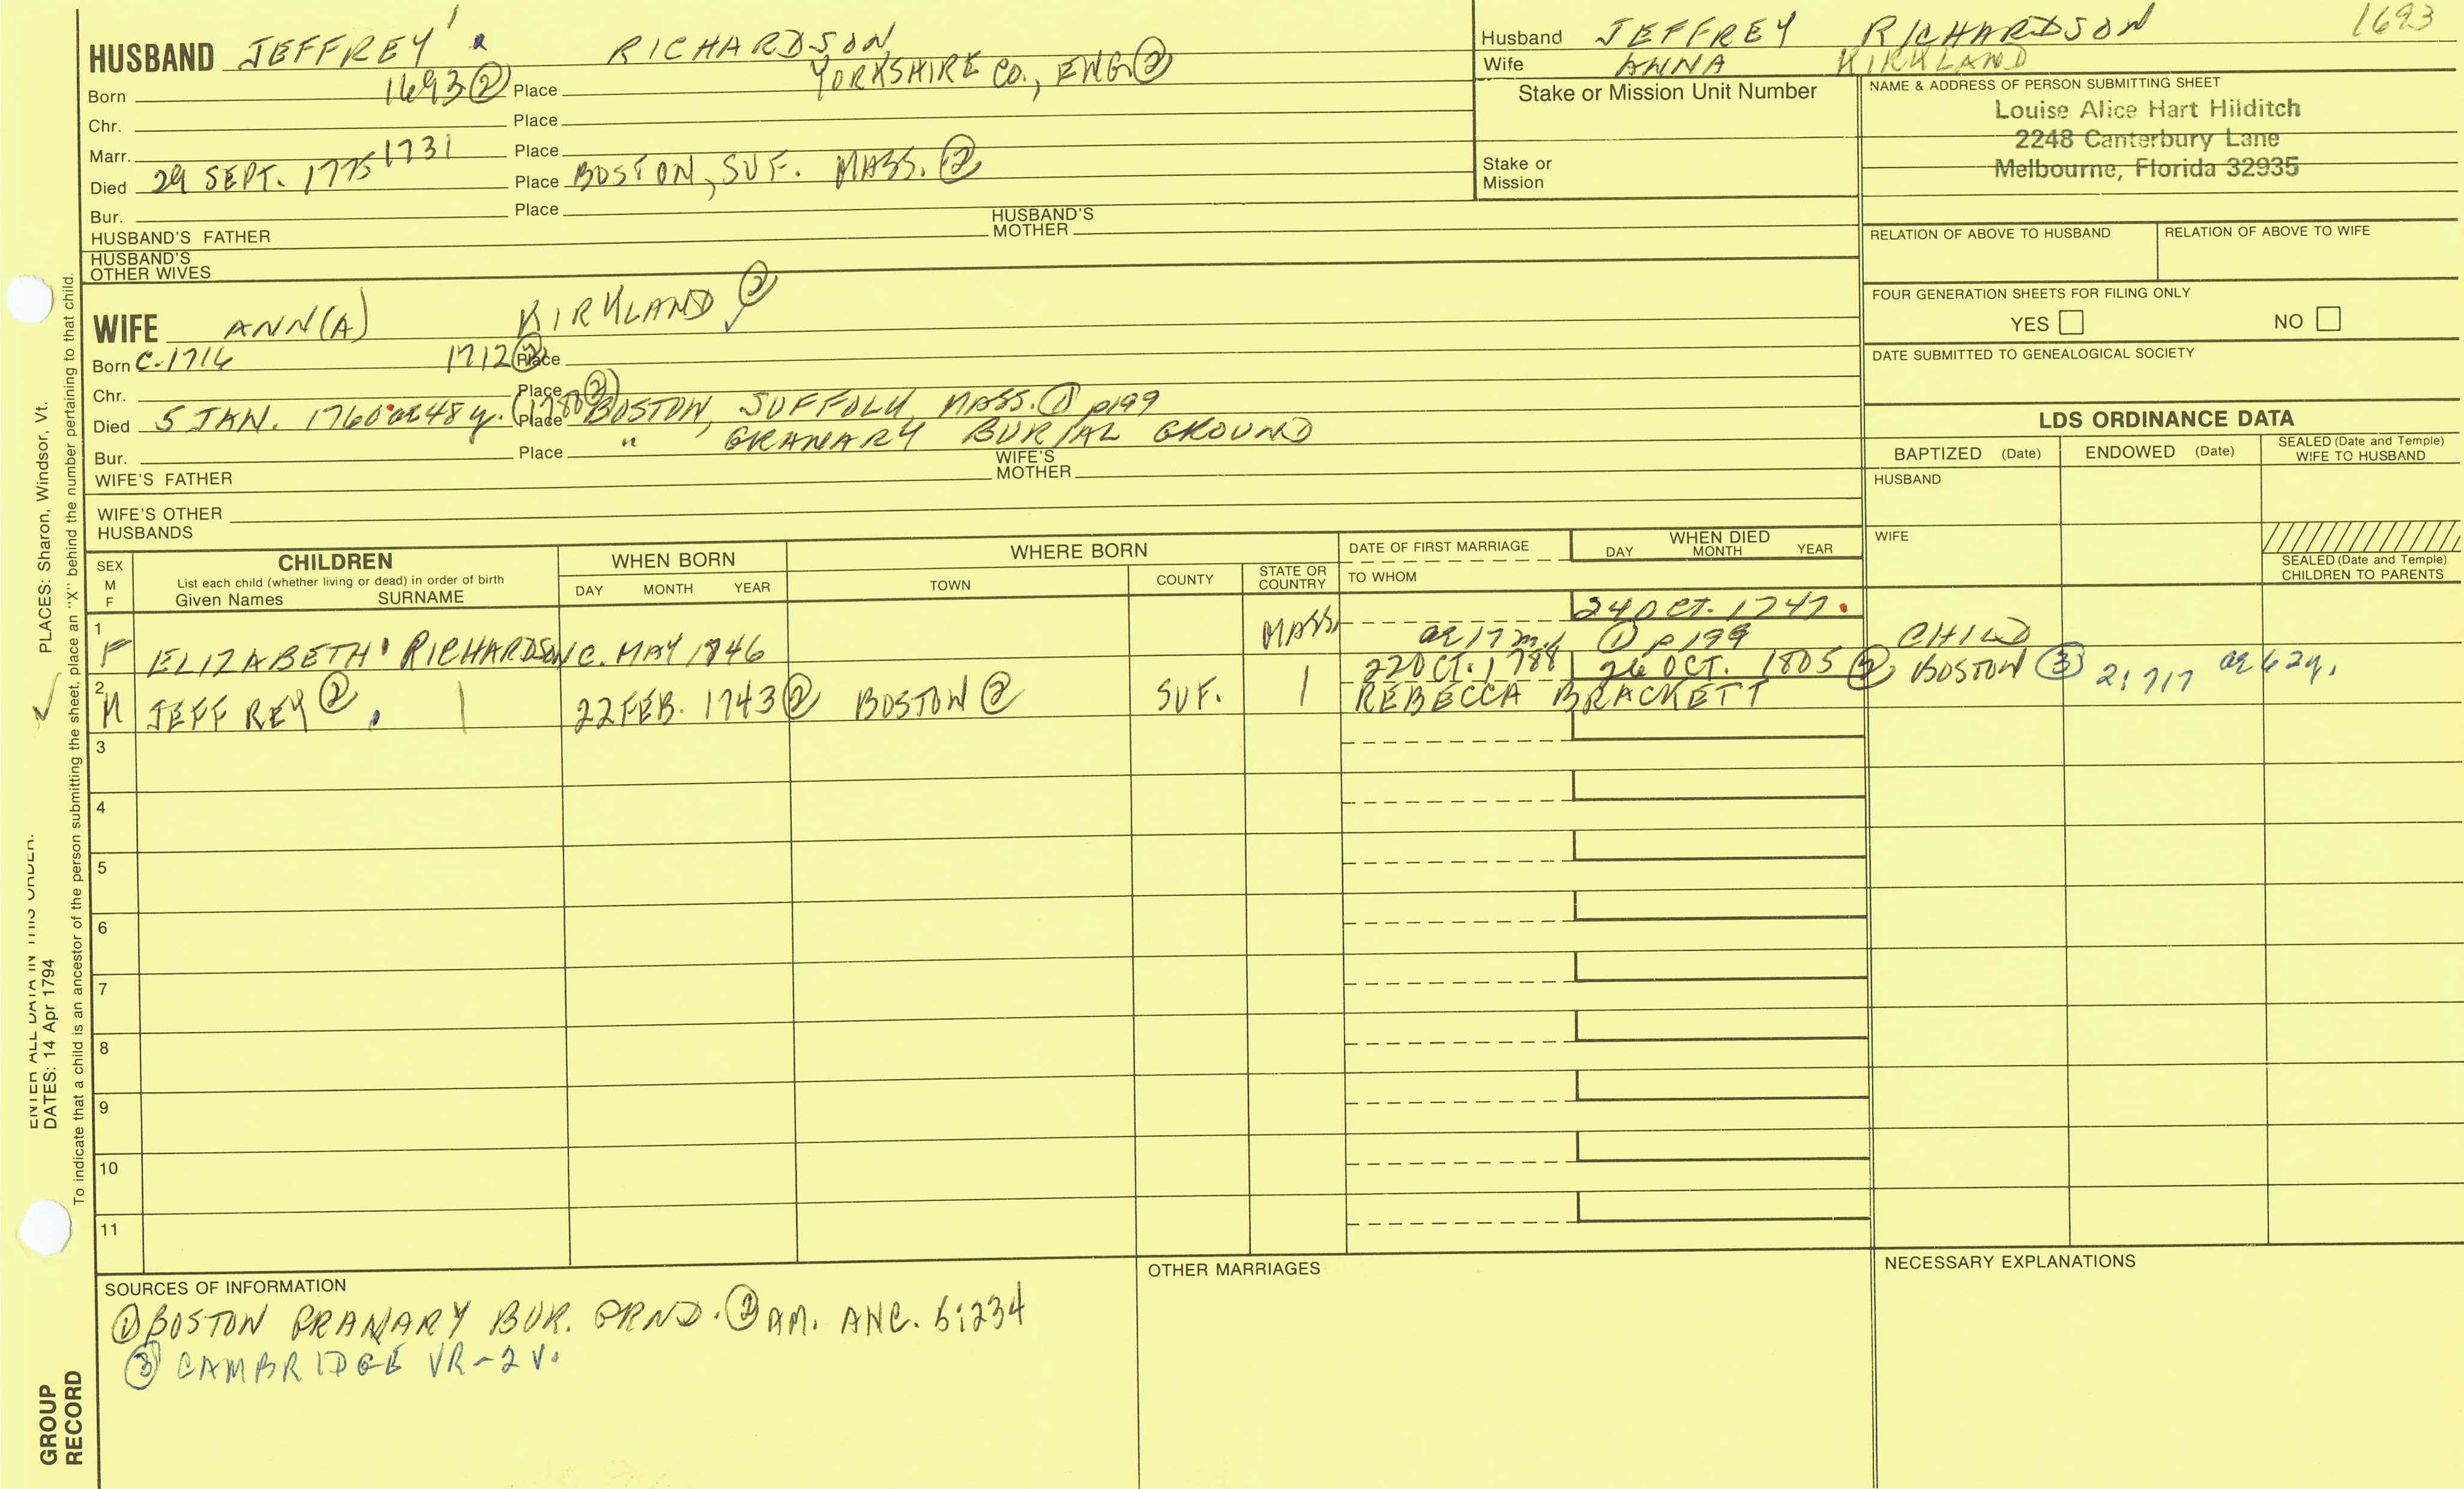 HUSBAND JEFFREY 1 RICHARDSON
Born 1693 ② Place YORKSHIRE CO., ENG ②
Chr. Place
Marr. 1731 Place
Died 29 SEPT. 1775 Place BOSTON, SUF. MASS. ②
Bur. Place
HUSBAND'S FATHER HUSBAND'S MOTHER
HUSBAND'S OTHER WIVES
WIFE ANN(A) KIRKLAND ②
Born C. 1716 1712 ② Place
Chr. Place
Died 5 JAN. 1760 ae 48 y. (1780 ②) Place BOSTON, SUFFOLK, MASS. ① p199
Bur. Place " GRANARY BURIAL GROUND
WIFE'S FATHER WIFE'S MOTHER
WIFE'S OTHER HUSBANDS
Husband JEFFREY RICHARDSON 1693
Wife ANNA KIRKLAND
Stake or Mission Unit Number
Stake or Mission
NAME & ADDRESS OF PERSON SUBMITTING SHEET
Louise Alice Hart Hilditch
2248 Canterbury Lane
Melbourne, Florida 32935
RELATION OF ABOVE TO HUSBAND RELATION OF ABOVE TO WIFE
FOUR GENERATION SHEETS FOR FILING ONLY
YES NO
DATE SUBMITTED TO GENEALOGICAL SOCIETY
LDS ORDINANCE DATA
BAPTIZED (Date) ENDOWED (Date) SEALED (Date and Temple) WIFE TO HUSBAND
HUSBAND
WIFE
SEALED (Date and Temple) CHILDREN TO PARENTS
SEX M F
CHILDREN
List each child (whether living or dead) in order of birth
Given Names SURNAME
WHEN BORN
DAY MONTH YEAR
WHERE BORN
TOWN COUNTY STATE OR COUNTRY
DATE OF FIRST MARRIAGE
TO WHOM
WHEN DIED
DAY MONTH YEAR
1 F ELIZABETH RICHARDSON C. MAY 1746 MASS 24 OCT. 1747
ae 17 m. ① p 199 CHILD
2 M JEFFREY ② 22 FEB. 1743 ② BOSTON ② SUF. 22 OCT. 1788 26 OCT. 1805 ② BOSTON ③ 2:717 ae 62y.
REBECCA BRACKETT
3
4
5
6
7
8
9
10
11
SOURCES OF INFORMATION
① BOSTON GRANARY BUR. GRND. ② AM. ANC. 5:234
③ CAMBRIDGE VR-2 V.
OTHER MARRIAGES
NECESSARY EXPLANATIONS
ENTER ALL DATA IN THIS ORDER.
DATES: 14 Apr 1794 PLACES: Sharon, Windsor, Vt.
To indicate that a child is an ancestor of the person submitting the sheet, place an "X" behind the number pertaining to that child.
GROUP RECORD